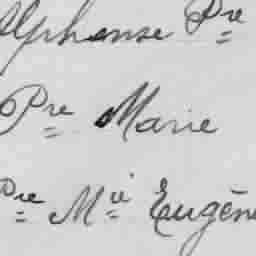 Alphonse Pre
Pre Marie
Pre Mie Eugène